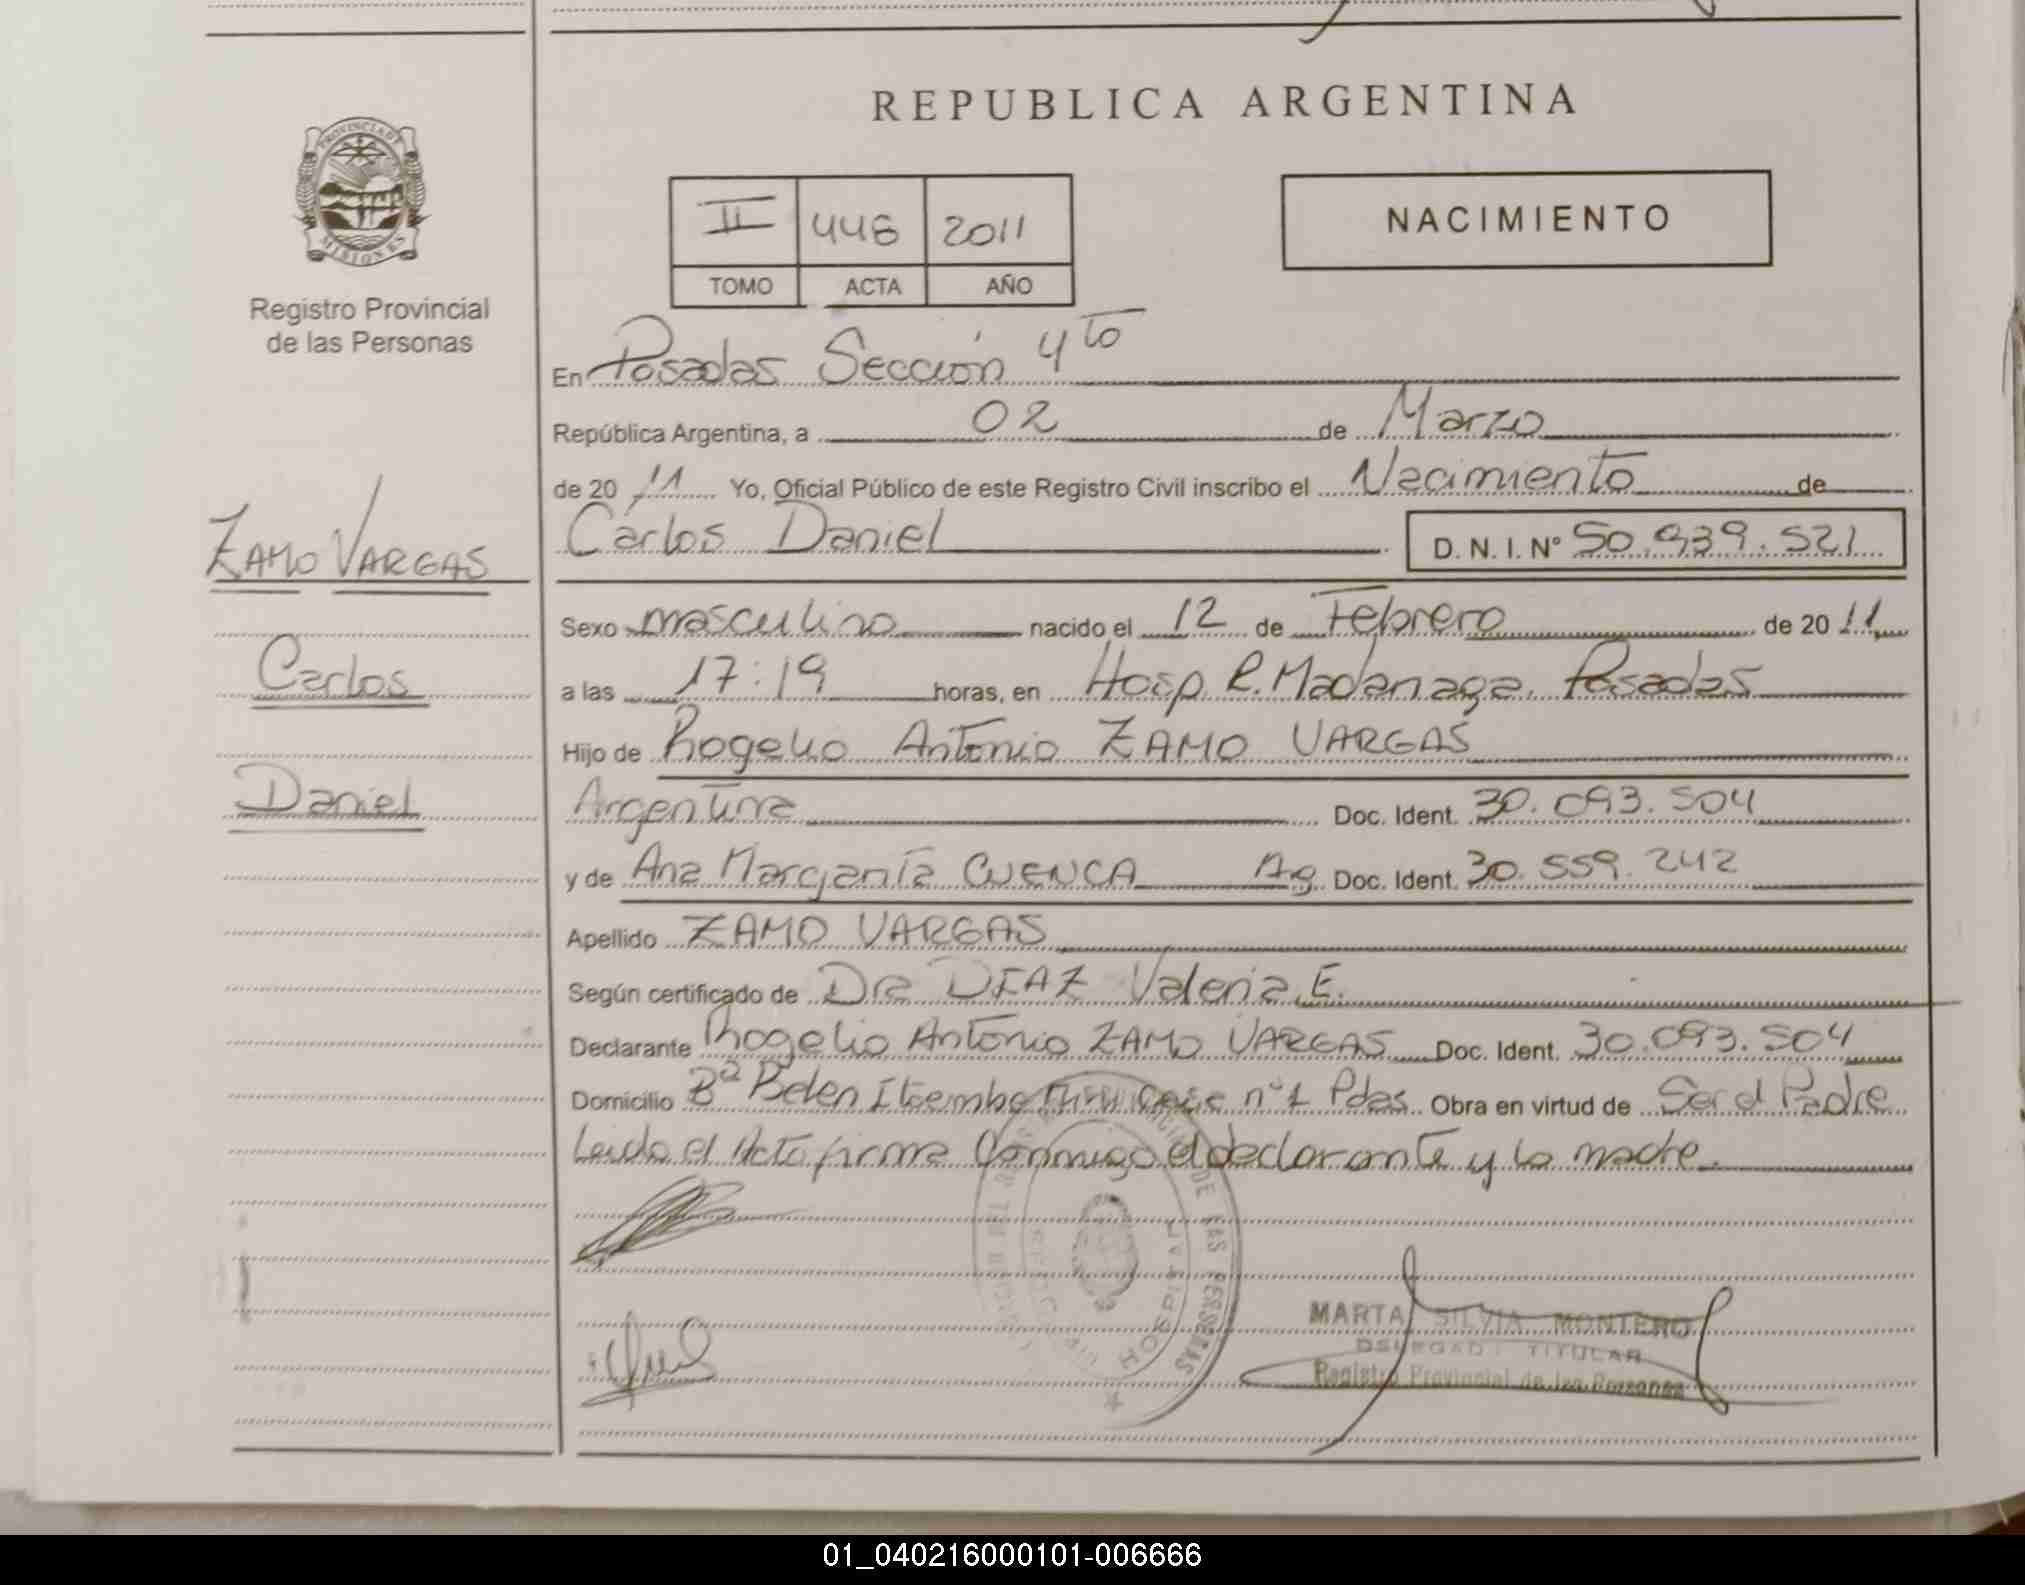 REPUBLICA ARGENTINA
PROVINCIA DE
MISIONES
Registro Provincial
de las Personas
II 446 2011
TOMO ACTA AÑO
NACIMIENTO
En Posadas Sección 4to
República Argentina, a 02 de Marzo
de 20 11 Yo, Oficial Público de este Registro Civil inscribo el Nacimiento de
Carlos Daniel D. N. I. N° 50.939.521
ZAMO VARGAS
Carlos
Daniel
Sexo masculino nacido el 12 de Febrero de 20 11
a las 17:19 horas, en Hosp R. Madariaga. Posadas
Hijo de Rogelio Antonio ZAMO VARGAS
Argentina Doc. Ident. 30.093.504
y de Ana Margarita CUENCA Ag. Doc. Ident. 30.559.242
Apellido ZAMO VARGAS
Según certificado de Dra DIAZ Valeria E.
Declarante Rogelio Antonio ZAMO VARGAS Doc. Ident. 30.093.504
Domicilio Bº Belen Itaembe Miní Case nº1 Pdas. Obra en virtud de Ser el Padre
Leida el Acta firma Conmigo el declarante y la madre.
DE LAS PERSONAS
HOSPITAL
MARTA SILVIA MONTERO
TITULAR
Registro Provincial de las Personas
01_040216000101-006666